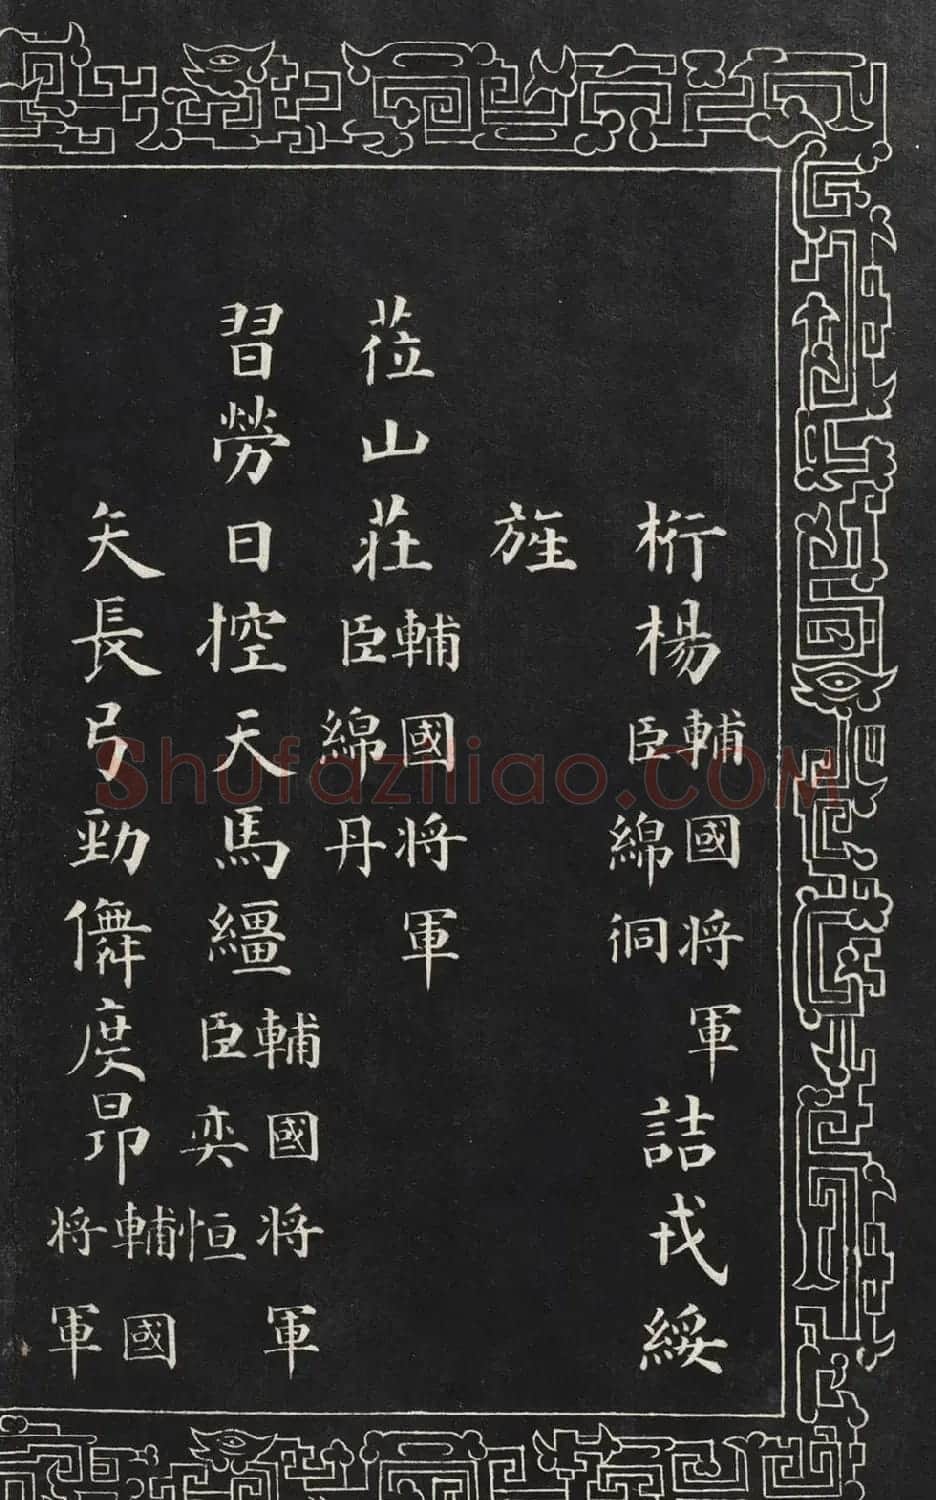 桁楊輔國将軍臣綿侗詰戎綏
旌
莅山莊輔國将軍臣綿丹
習勞日控天馬繮輔國将軍臣奕恒
矢長弓勁儛度昂輔國将軍
Shufaziliao.COM